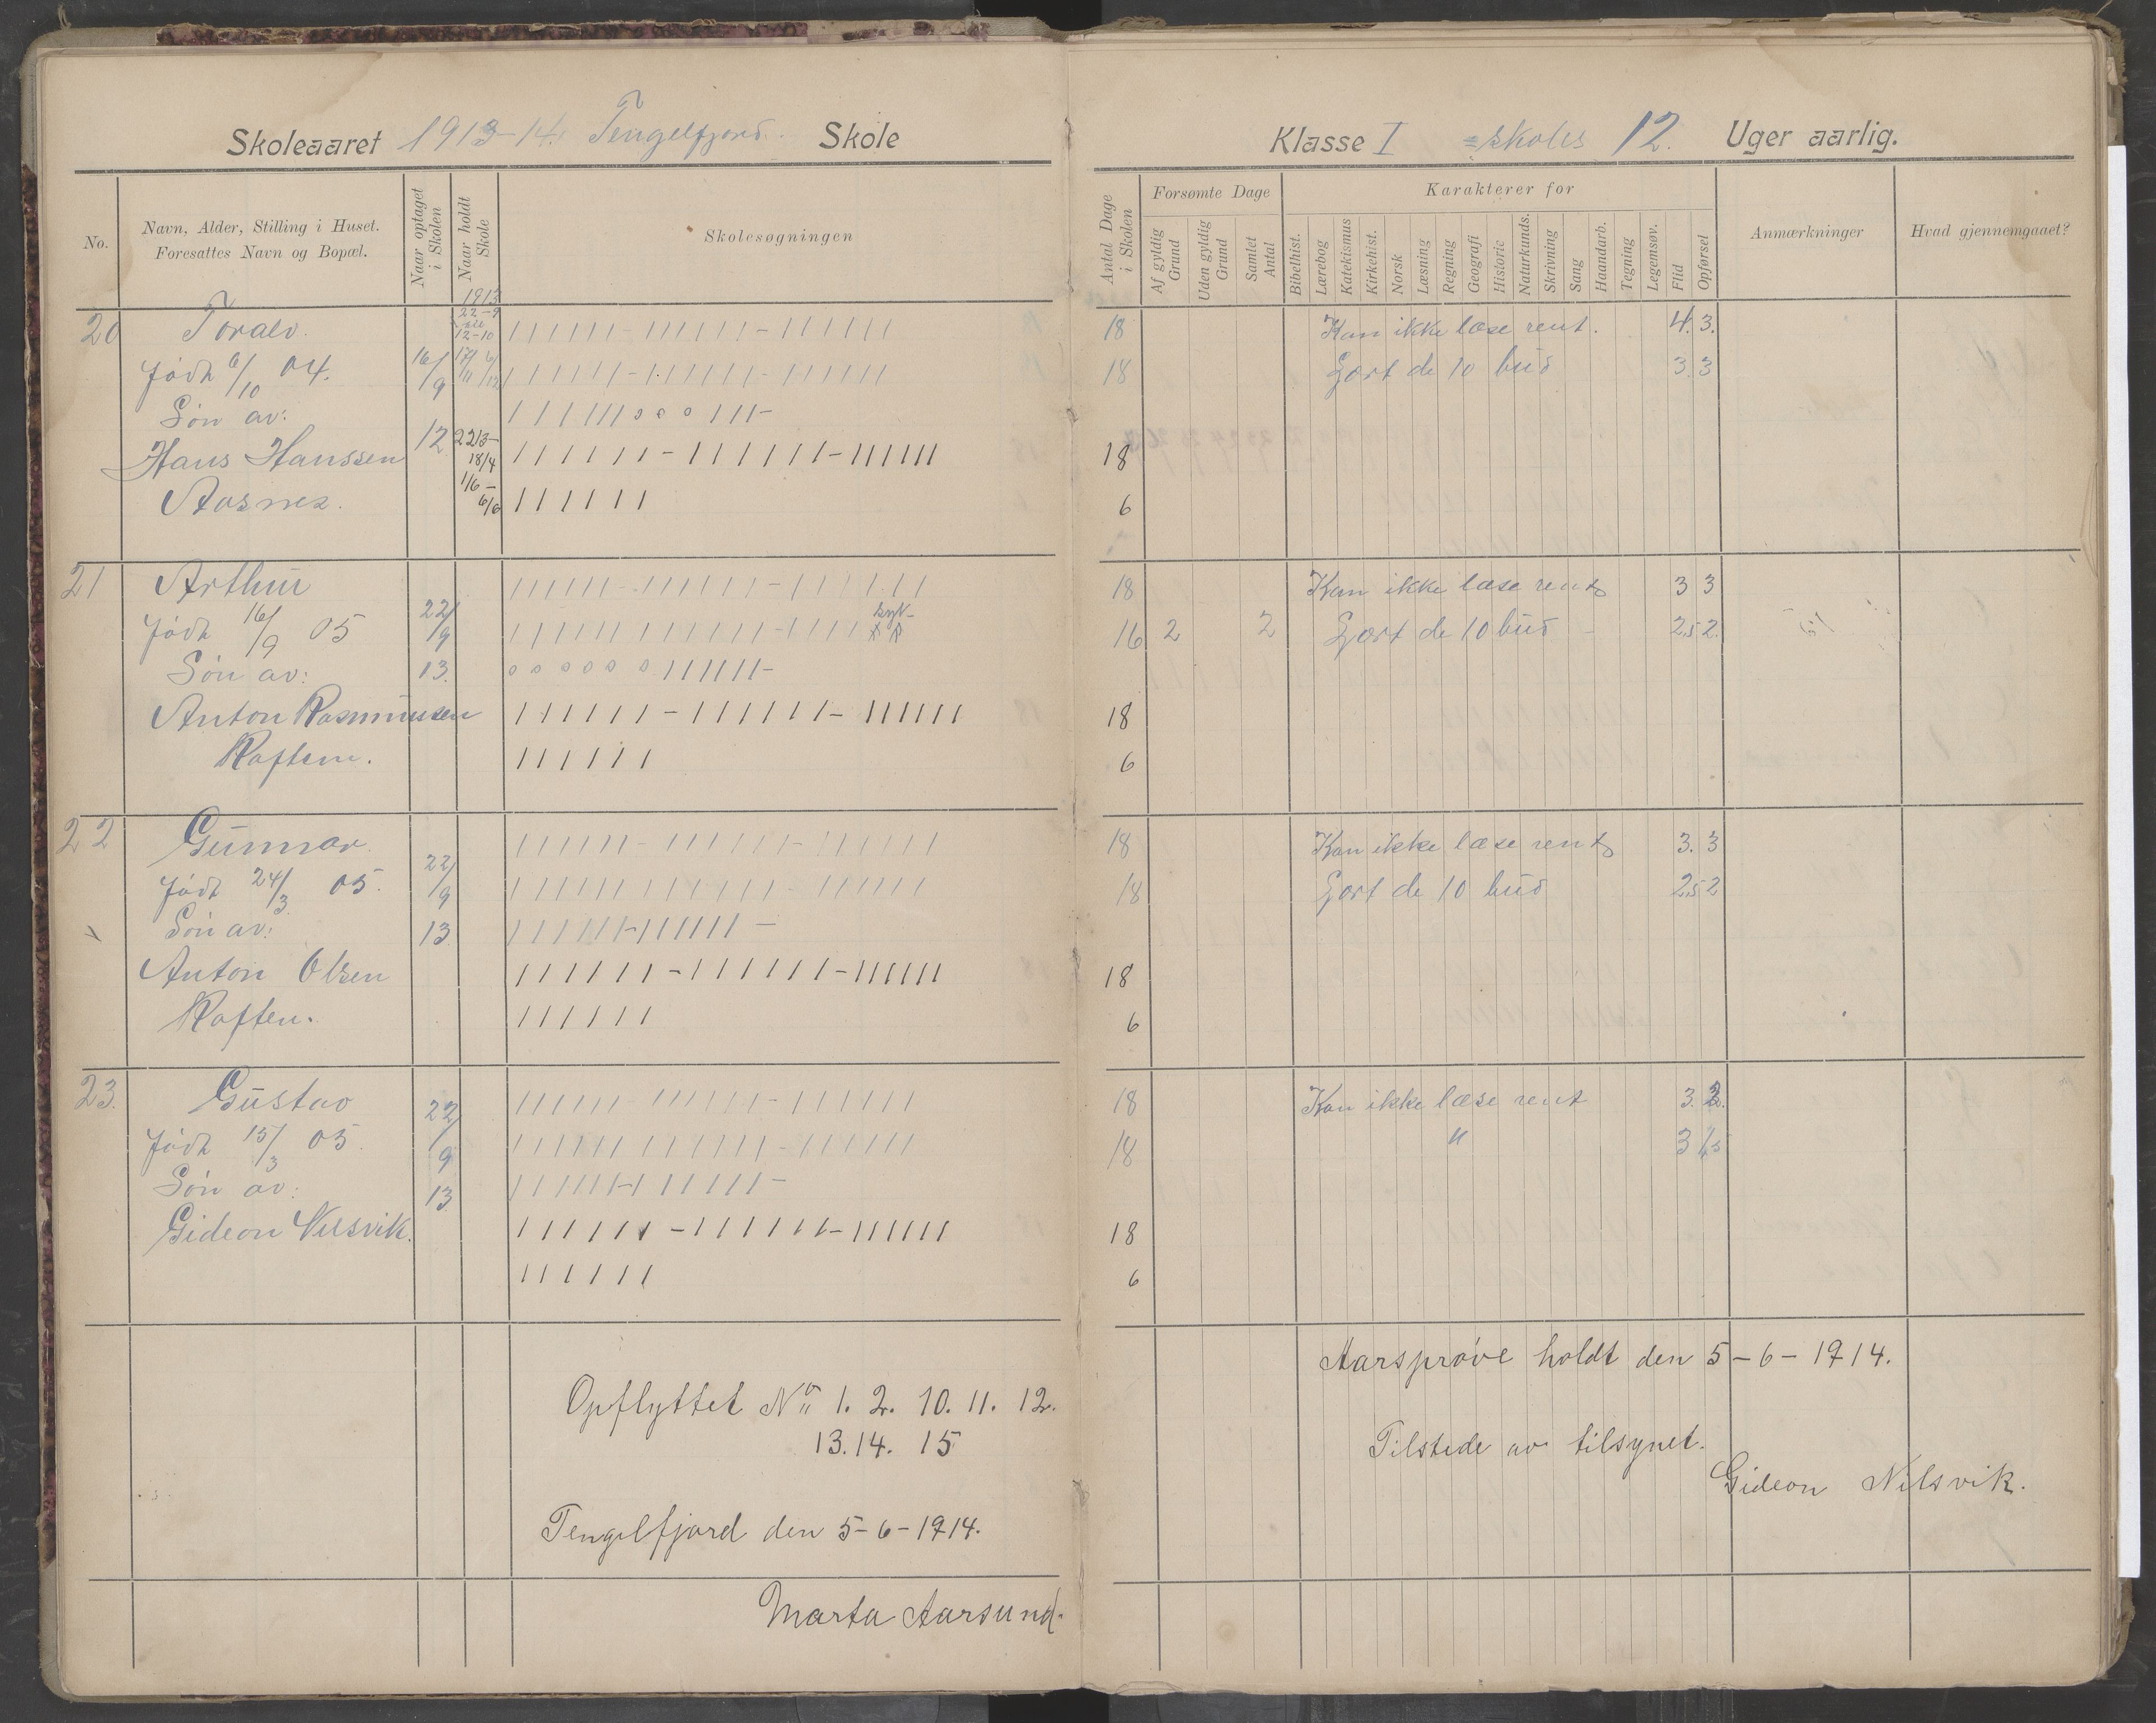 Skoleaaret 1913-14. Tengelfjord. Skole
Klasse I = skoles 12. Uger aarlig.
No.
Navn, Alder, Stilling i Huset.
Foresattes Navn og Bopæl.
Naar optaget i Skolen
Naar holdt Skole
Skolesøgningen
Antal Dage i Skolen
Forsømte Dage
Af gyldig Grund
Uden gyldig Grund
Samlet Antal
Karakterer for
Bibelhist.
Lærebog
Katekismus
Kirkehist.
Norsk
Læsning
Regning
Geografi
Historie
Naturkunds.
Skrivning
Sang
Haandarb.
Tegning
Legemsøv.
Flid
Opførsel
Anmærkninger
Hvad gjennemgaaet?
1913
22-9
12-10
20 Toralv. 18 Kan ikke læse rent. 4. 3.
født 6/10 04. 16/9 17/11 6/12 18 Gjort de 10 bud 3. 3
Søn av:
Hans Hanssen 12 22/3- 18/4 18
Aasnes. 1/6- 6/6 6
21 Arthur 18 Kan ikke læse rent 3 3
født 16/9 05 22/9 syk- 16 2 2 Gjort de 10 bud 2.5 2.
Søn av: 13.
Anton Rasmussen 18
Raften. 6
22 Gunnar. 18 Kan ikke læse rent 3. 3
født 24/3 05. 22/9 18 Gjort de 10 bud 2.5 2
Søn av: 13
Anton Olsen 18
Raften. 6
23. Gustav 22/9 18 Kan ikke læse rent 3.
født 15/3 05. 18 " 3 1,5
Søn av: 13
Gideon Nilsvik. 18
6
Aarsprøve holdt den 5-6-1914.
Opflyttet No 1. 2. 10. 11. 12.
13. 14. 15
Tilstede av tilsynet.
Gideon Nilsvik.
Tengelfjord den 5-6-1914.
Marta Aarsund.